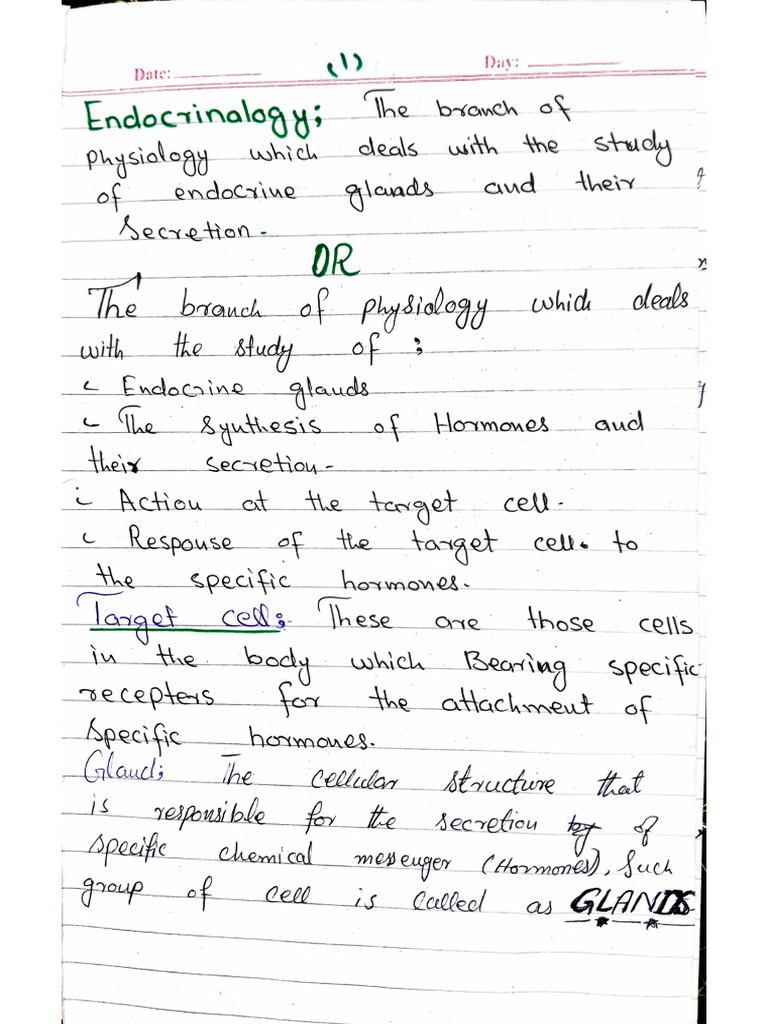 (1)
Date: Day:
Endocrinalogy; The branch of
physiology which deals with the study
of endocrine glands and their
Secretion.
OR
The branch of physiology which deals
with the study of ;
Endocrine glands
The synthesis of Hormones and
their secretion-
Action at the target cell.
Response of the target cell. to
the specific hormones.
Target cell; These are those cells
in the body which Bearing specific
recepters for the attachment of
specific hormones.
Gland; The cellular structure that
is responsible for the secretion by of
specific chemical messenger (Hormones), Such
group of cell is called as GLANDS